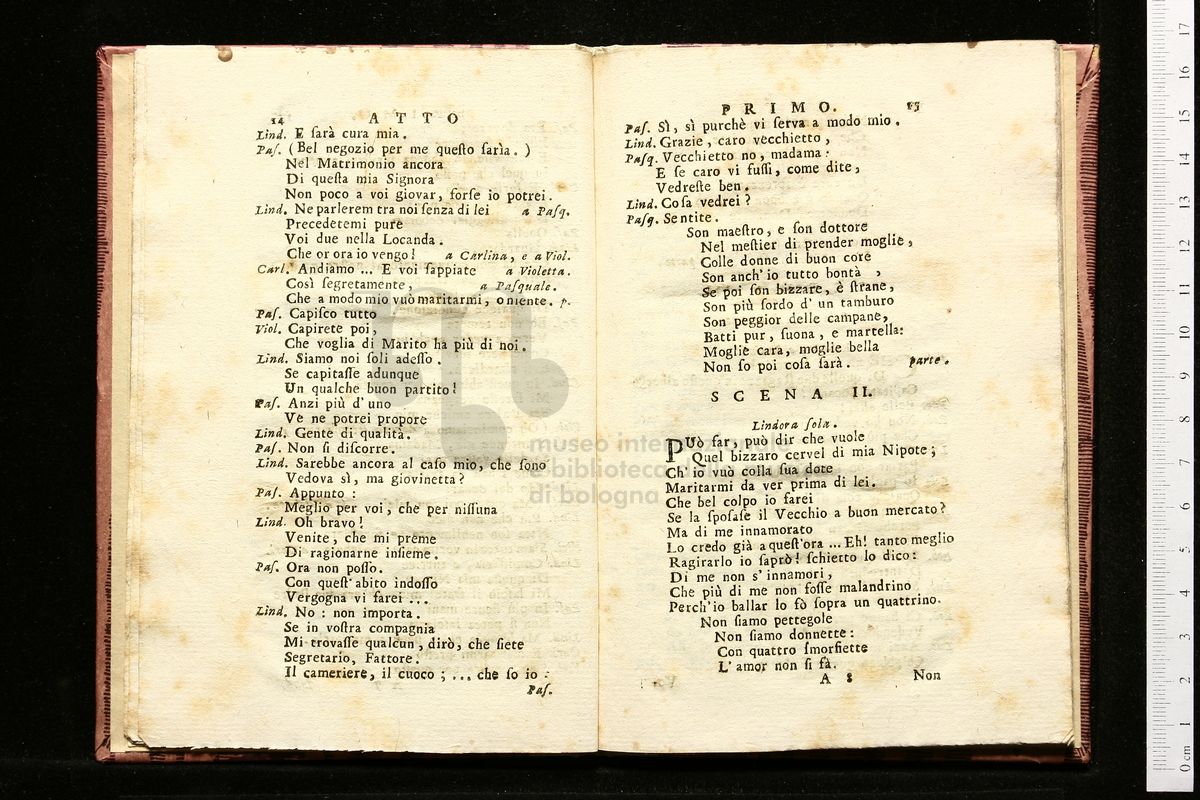 14 ATTO
Lind. E sarà cura mia.
Pas. (Bel negozio per me questo sarìa.)
Nel Matrimonio ancora
Di questa mia Signora
Non poco a voi giovar, forse io potrei.
Lind. Ne parlerem tra noi senza di lei a Pasq.
Precedetemi pure
Voi due nella Locanda.
Che or ora io vengo! a Carlina, e a Viol.
Carl. Andiamo ... E voi sappiate a Violetta.
Così segretamente, a Pasquale.
Che a modo mio vuò maritarmi, o niente. p.
Pas. Capisco tutto
Viol. Capirete poi,
Che voglia di Marito ha più di noi.
Lind. Siamo noi soli adesso.
Se capitasse adunque
Un qualche buon partito!
Pas. Anzi più d'uno
Ve ne potrei propore
Lind. Gente di qualità.
Pas. Non si discorre.
Lind. Sarebbe ancora al caso mio, che sono
Vedova sì, ma giovinetta?
Pas. Appunto:
Meglio per voi, che per nissuna
Lind. Oh bravo!
Venite, che mi preme
Di ragionarne insieme.
Pas. Ora non posso.
Con quest'abito indosso
Vergogna vi farei ...
Lind. No: non importa.
Se in vostra compagnia
Mi trovasse qualcun, dirò, che siete
Segretario, Fattore.
Il cameriere, il cuoco; ... che so io:
Pas.
PRIMO. 15
Pas. Sì, sì purchè vi serva a modo mio.
Lind. Grazie, caro vecchietto,
Pasq. Vecchietto no, madama:
E se caro vi fussi, come dite,
Vedreste ben.
Lind. Cosa vedrei?
Pasq. Sentite.
Son maestro, e son dottore
Nel mestier di prender moglie,
Colle donne di buon core
Son anch'io tutto bontà,
Se poi son bizzare, è strane,
Son più sordo d'un tamburo
Son peggior delle campane,
Batti pur, suona, e martella:
Moglie cara, moglie bella
Non so poi cosa sarà. parte.
SCENA II.
Lindora sola.
PUò far, può dir che vuole
Quel bizzaro cervel di mia Nipote;
Ch'io vuò colla sua dote
Maritarmi da ver prima di lei.
Che bel colpo io farei
Se la sposase il Vecchio a buon mercato?
Ma di me innamorato
Lo credo già a quest'ora ... Eh! tanto meglio
Ragirarlo io saprò! schietto lo dico:
Di me non s'innamori,
Che più di me non fosse malandrino
Perch'io ballar lo fò sopra un quattrino.
Non siamo pettegole
Non siamo donnette:
Con quattro smorfiette
L'amor non si fà.
A 8 Non
museo internazionale
e biblioteca
di bologna